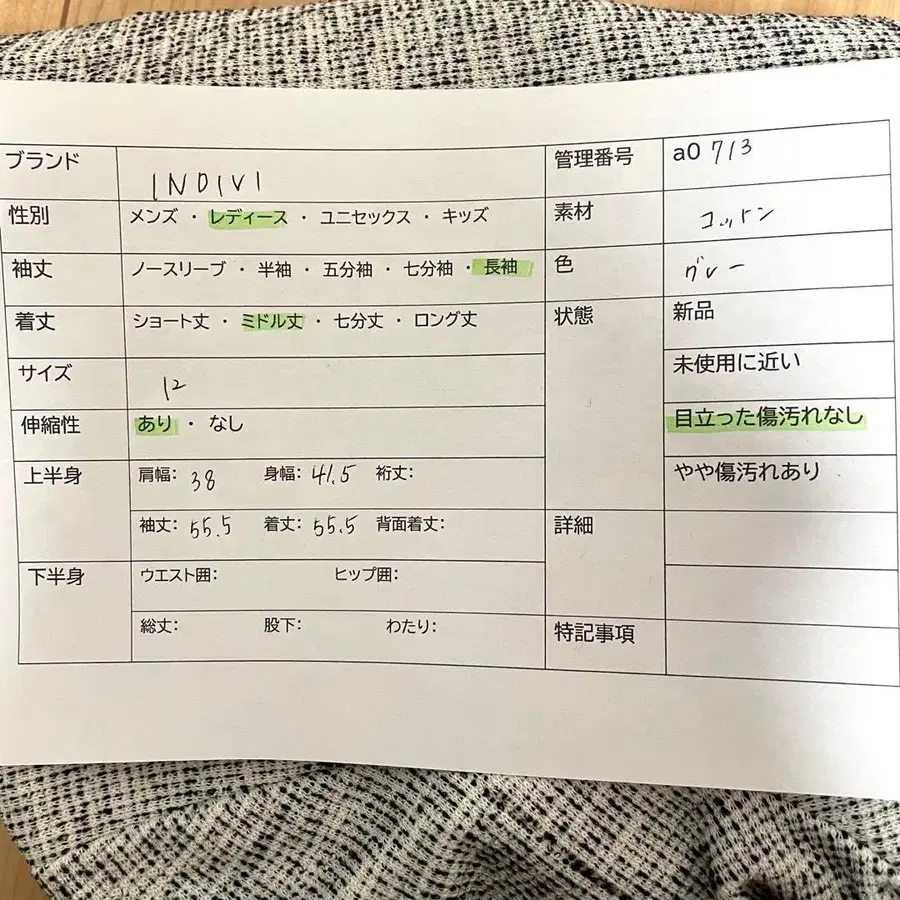 ブランド INDIVI 管理番号 a0 713
性別 メンズ ・ レディース ・ ユニセックス ・ キッズ 素材 コットン
袖丈 ノースリーブ ・ 半袖 ・ 五分袖 ・ 七分袖 ・ 長袖 色 グレー
着丈 ショート丈 ・ ミドル丈 ・ 七分丈 ・ ロング丈 状態 新品
サイズ 12 未使用に近い
伸縮性 あり ・ なし 目立った傷汚れなし
上半身 肩幅: 38 身幅: 41.5 裄丈: やや傷汚れあり
袖丈: 55.5 着丈: 55.5 背面着丈: 詳細
下半身 ウエスト囲: ヒップ囲:
総丈: 股下: わたり: 特記事項